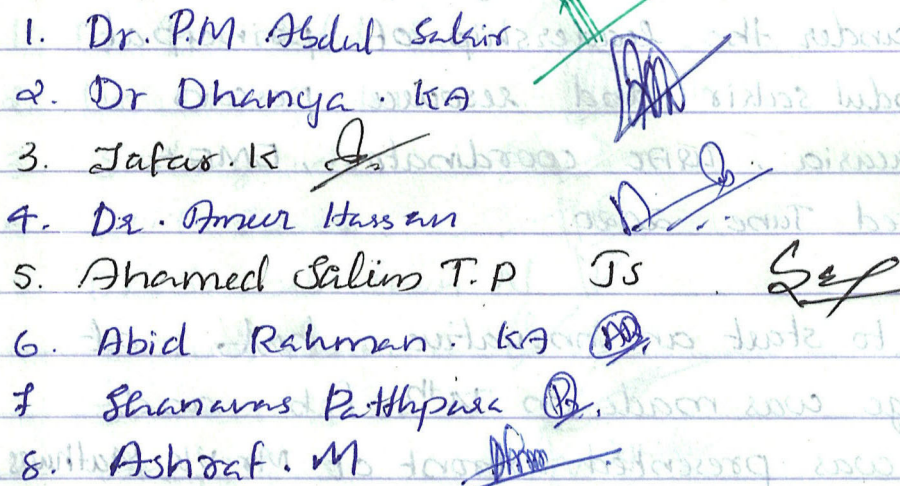 1. Dr. P.M Abdul Sakir
2. Dr Dhanya . KA
3. Jafar. K
4. Dr. Ameer Hassan
5. Ahamed Salim T.P JS
6. Abid Rahman. KA
7 Shanavas Patthpara
8. Ashraf. M